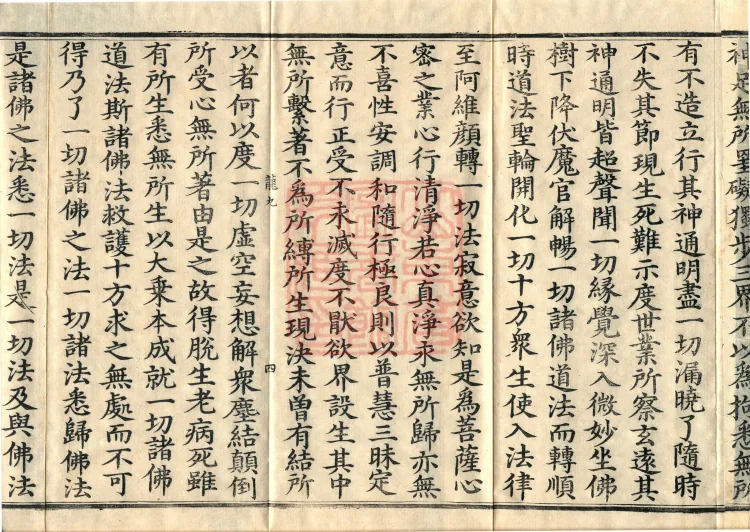 神足無所罣礙獨步三界不以為拘悉無所
有不造立行其神通明盡一切漏曉了隨時
不失其節現生死難示度世業所察玄遠其
神通明皆超聲聞一切緣覺深入微妙坐佛
樹下降伏魔官解暢一切諸佛道法而轉順
時道法聖輪開化一切十方衆生使入法律
至阿維顏轉一切法寂意欲知是為菩薩心
密之業心行清淨若心真淨永無所歸亦無
不喜性安調和隨行極良則以普慧三昧定
意而行正受不永滅度不猒欲界設生其中
無所繫著不為所縛所生現決未曾有結所
龍九 四
以者何以度一切虛空妄想解衆塵結顛倒
所受心無所著由是之故得脫生老病死雖
有所生悉無所生以大乘本成就一切諸佛
道法斯諸佛法救護十方求之無處而不可
得乃了一切諸佛之法一切諸法悉歸佛法
是諸佛之法悉一切法是一切法及與佛法